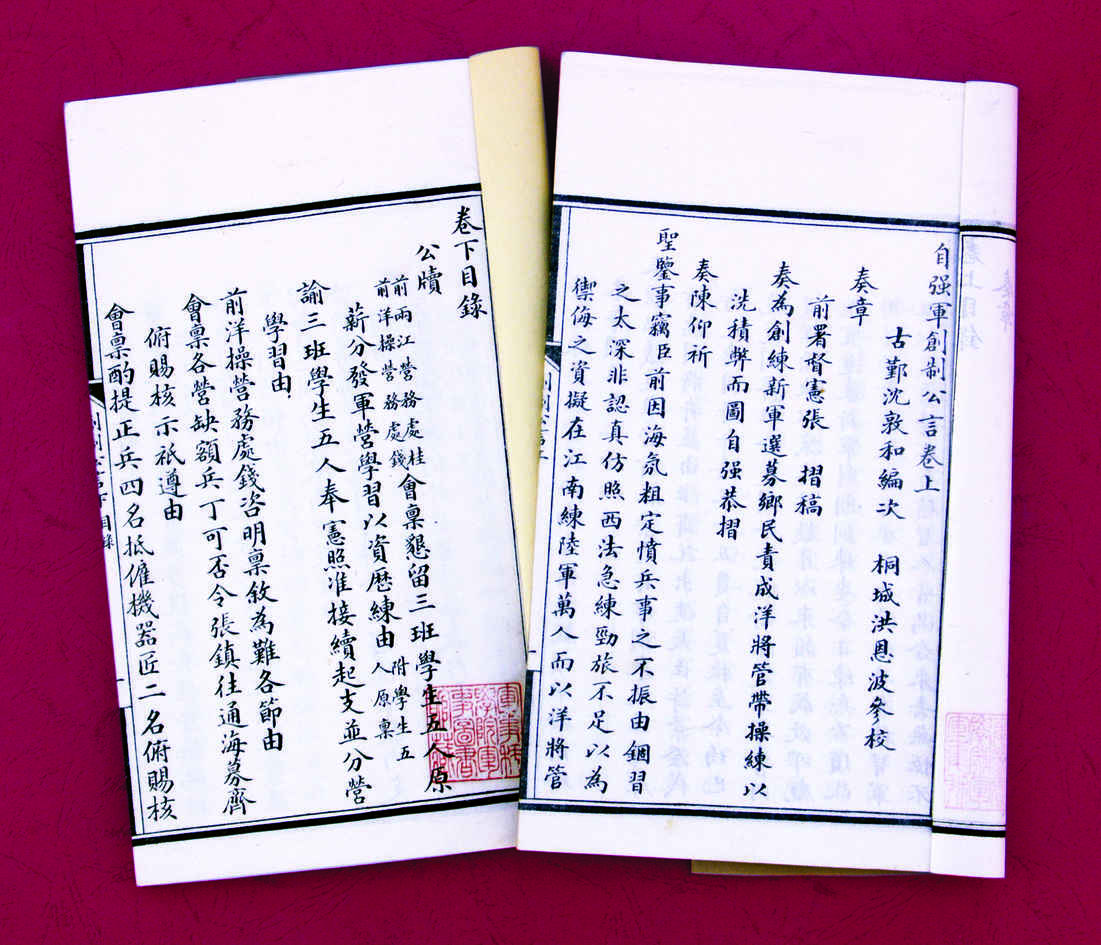 自强軍創制公言卷上
古鄞沈敦和編次　桐城洪恩波參校
奏章
前署督憲張　摺稿
奏為創練新軍選募鄉民責成洋將管帶操練以
洗積弊而圖自强恭摺
奏陳仰祈
聖鑒事竊臣前因海氛粗定憤兵事之不振由錮習
之太深非認真仿照西法急練勁旅不足以為
禦侮之資擬在江南練陸軍萬人而以洋將管
卷下目錄
公牘
前兩江營務處桂
前洋操營務處錢
會稟懇留三班學生五人原
薪分發軍營學習以資歷練由
附學生五
人原稟
諭三班學生五人奉憲照准接續起支並分營
學習由
前洋操營務處錢咨明稟敘為難各節由
會稟各營缺額兵丁可否令張鎮往通海募齊
俯賜核示祇遵由
會稟酌提正兵四名抵僱機器匠二名俯賜核